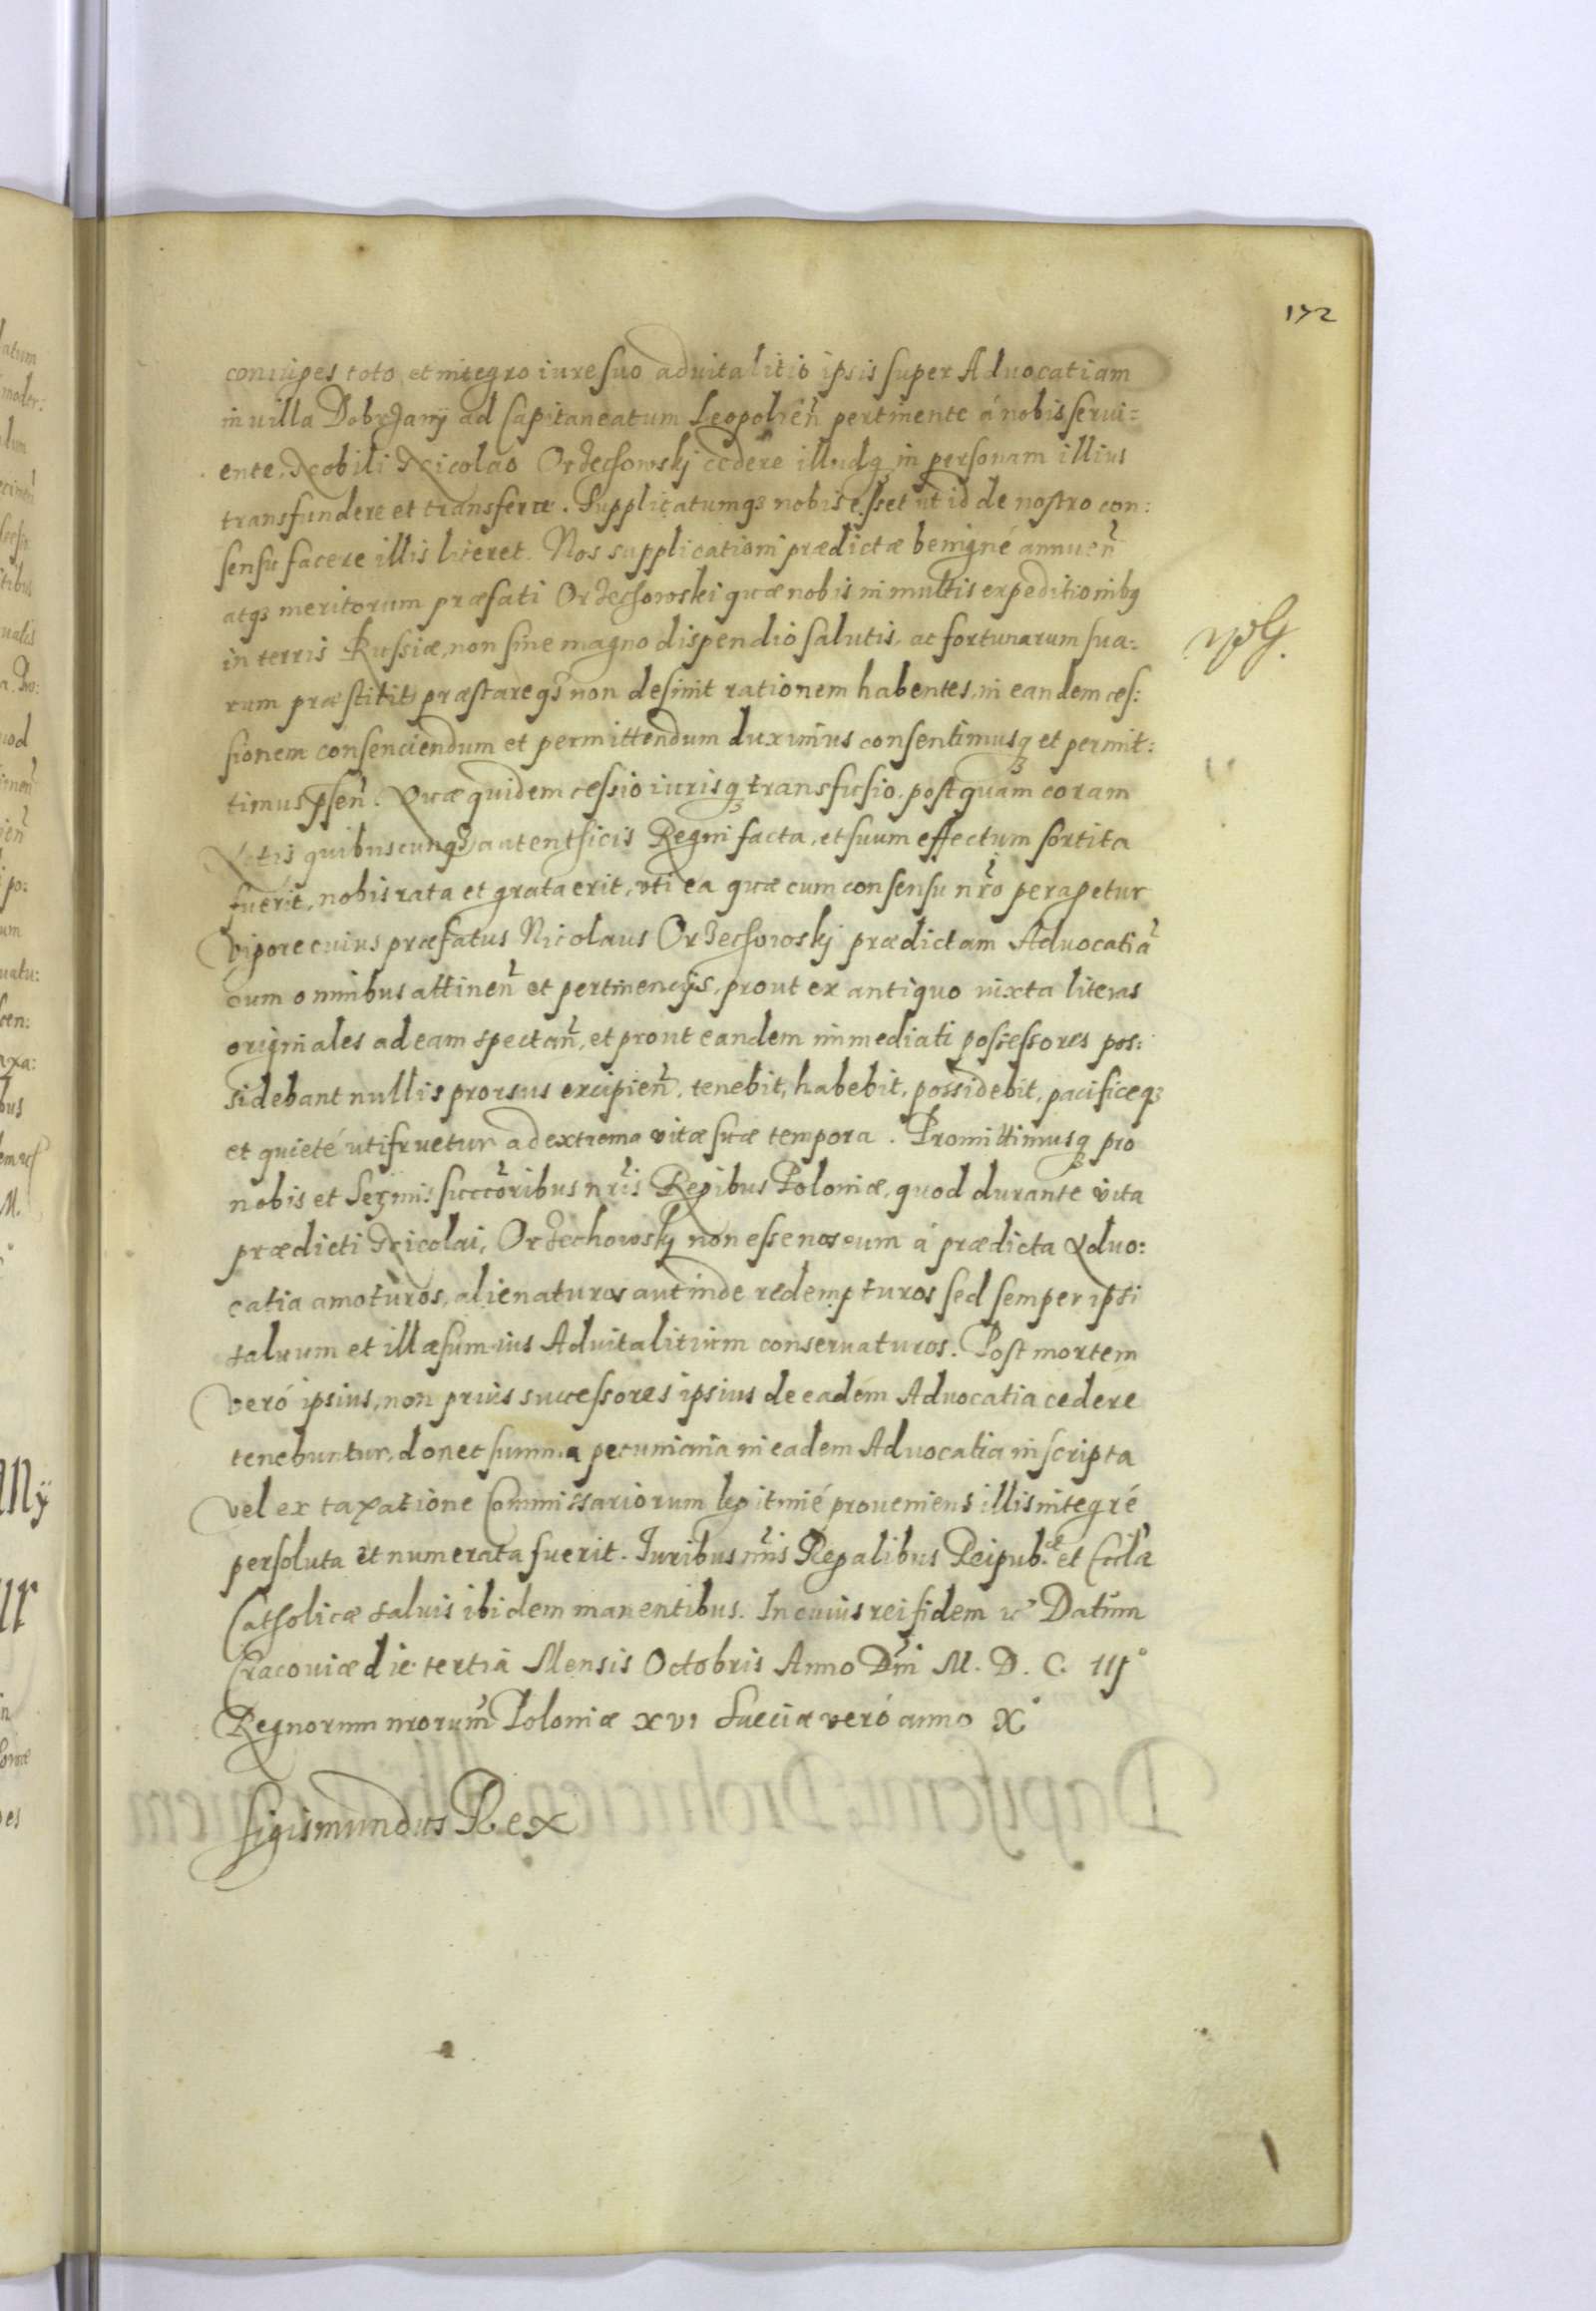 172
coniuges toto et integro iure suo aduitalitio ipsis super Aduocatiam
in villa Dobrzanÿ ad Capitaneatum Leopolien̄ pertinente á nobis serui=
ente, Nobili Nicolao Orzechowskj cedere illudq̨ in personam illius
transfundere et transferre. Supplicatumqꝫ nobis esset ut id de nostro con:
sensu facere illis liceret. Nos supplicationi prædictæ benigné annuen̄
atqꝫ meritorum præfati Orzechowski quæ nobis in multis expeditionibꝫ
in terris Russiæ, non sine magno dispendio salutis, ac fortunarum sua:
rum præstitit, præstareqꝫ non desinit rationem habentes, in eandem ces:
sionem consenciendum et permittendum duximus consentimusqꝫ et permit:
timus p̄sen̄. Quæ quidem cessio iurisqꝫ transfusio, postquam coram
Actis quibuscunqꝫ autenthicis Regni facta, et suum effectum sortita
fuerit, nobis rata et grata erit, vti ea quæ cum consensu nr̄o peragetur
Vigore cuius præfatus Nicolaus Orzechowskj prædictam Aduocatiā
cum omnibus attinen̄ et pertinencijs, prout ex antiquo iuxta literas
originales ad eam spectan̄, et prout eandem immediati possessores pos:
sidebant nullis prorsus excipien̄, tenebit, habebit, possidebit, pacificeqꝫ
et quieté utifruetur ad extrema vitæ suæ tempora. Promittimusqꝫ pro
nobis et Ser̄mis succc̄oribus nr̄is Regibus Poloniæ, quod durante vita
prædicti Nicolai, Orzechowskÿ non esse nos eum á prædicta Aduo:
catia amoturos, alienaturos aut inde redempturos sed semper ipsi
saluum et illæsum ius Aduitalitium conseruaturos. Post mortem
veró ipsius, non prius successores ipsius de eadem Aduocatia cedere
tenebuntur, donec summa pecuniaria in eadem Aduocatia inscripta
vel ex taxatione Commissariorum legitimé proueniens illis integré
persoluta et numerata fuerit. Iuribus nr̄is Regalibus Reipub.cæ et Eccl̄æ
Catholicæ saluis ibidem manentibus. In cuius rei fidem &c Datum
Cracouiæ die tertia Mensis Octobris Anno Dn̄i M. D. C. IIJ°
Regnorum nrorum̄ Poloniæ XVI Sueciæ veró anno X°
Sigismundus Rex